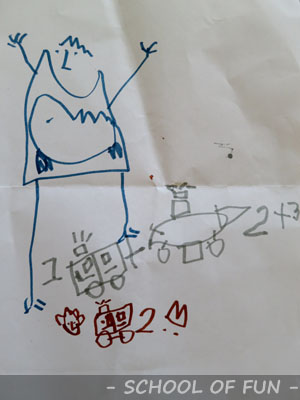 1
2+3
2
- SCHOOL OF FUN -